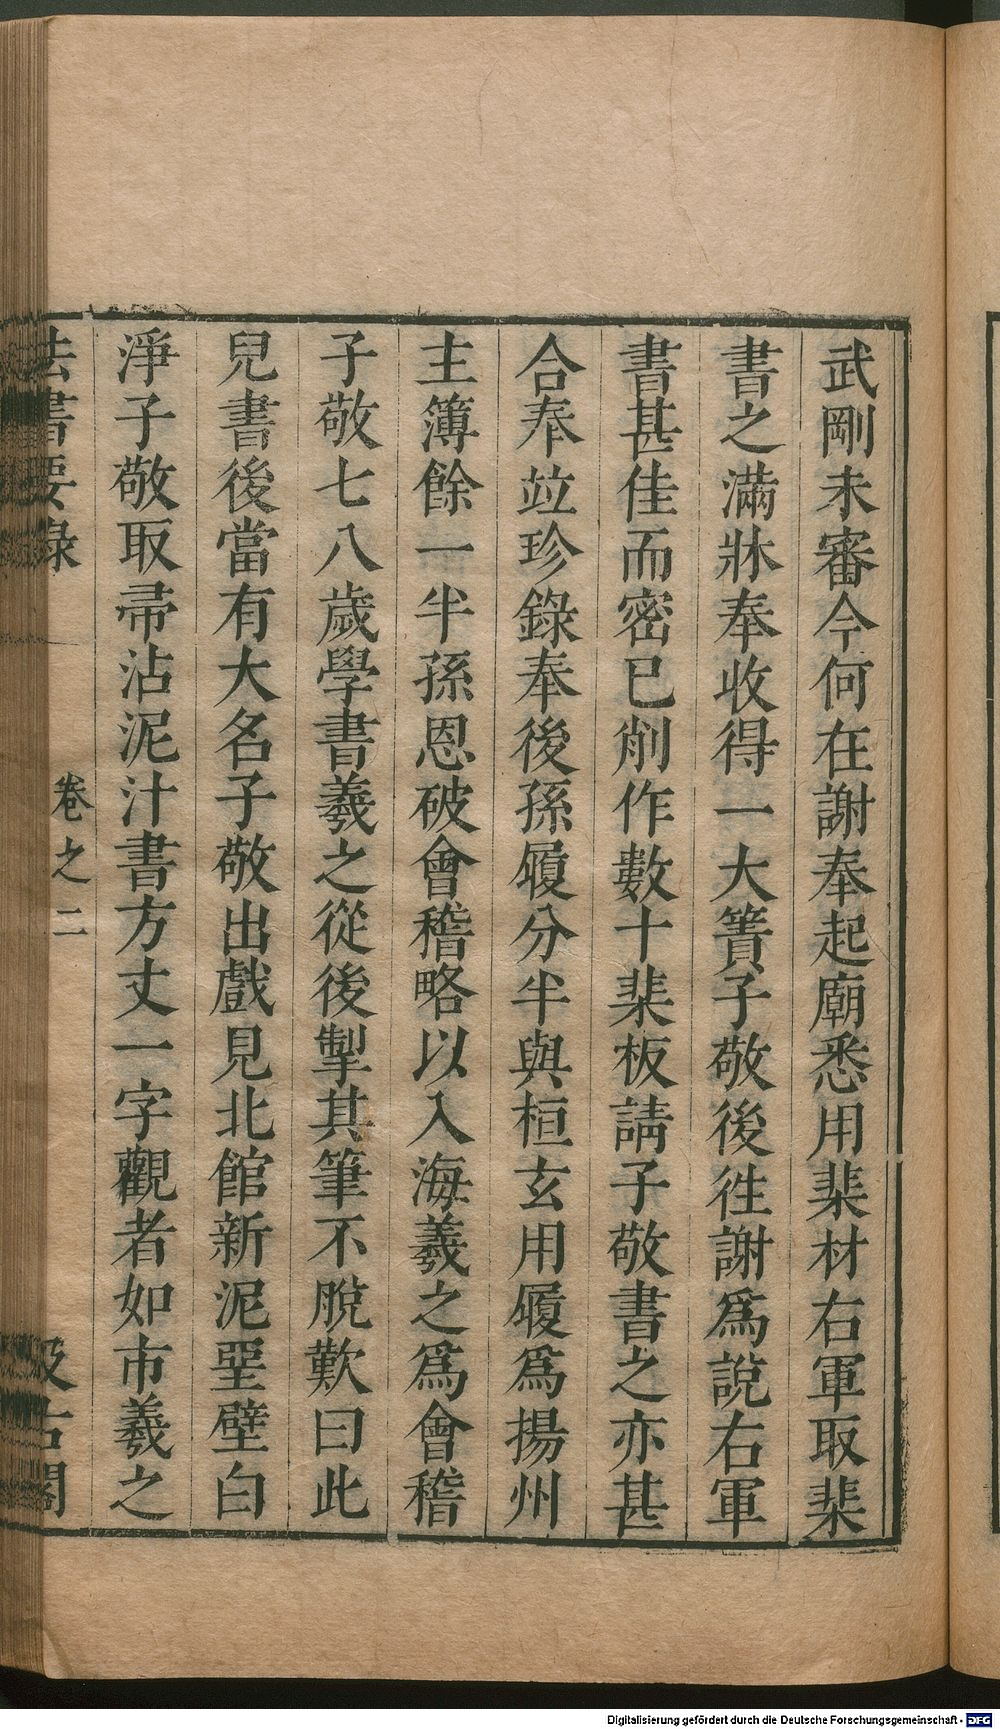 武剛未審今何在謝奉起廟悉用棐材右軍取棐
書之滿牀奉收得一大簀子敬後徃謝爲說右軍
書甚佳而密已削作數十棐板請子敬書之亦甚
合奉竝珍錄奉後孫履分半與桓玄用履爲揚州
主簿餘一半孫恩破會稽略以入海羲之爲會稽
子敬七八歲學書羲之從後掣其筆不脫歎曰此
兒書後當有大名子敬出戲見北館新泥堊壁白
淨子敬取帚沾泥汁書方丈一字觀者如市羲之
法書要錄 卷之二 汲古閣
Digitalisierung gefördert durch die Deutsche Forschungsgemeinschaft - DFG